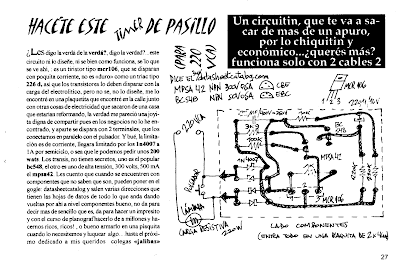 HACÉTE ESTE TIMER DE PASILLO
(PARA 220 VCA)
Un circuitin, que te va a sa-
car de mas de un apuro,
por lo chiquitin y
económico...¿querés más?
funciona solo con 2 cables 2
¿LES digo la verda de la verda?, digo la verdad? . este
circuito ni lo diseñe, ni se bien como funciona, se lo que
se ve ahi, es un tiristor tipo mcr106, que se disparan
con poquita corriente, no es «duro» como un triac tipo
226 d, asi que los transistores lo deben disparar con la
carga del electrolitico, pero no se, no lo diseñe, me lo
encontré en una plaqueta que encontré en la calle junto
con otras cosas de electricidad que sacaron de una casa
que estarian reformando, la verdad me pareció una joyi-
ta digna de compartir pues en los negocios no lo he en-
contrado, y aparte se dispara con 2 terminales, que los
conectamos en paralelo con el pulsador. Y bué, la limita-
ción es de corriente, llegara limitado por los 1n4007 a
1A por servicio, o sea que le podemos pedir unos 200
wats. Los transis, no tienen secretos, uno es el popular
bc548, el otro es uno de alta tension, 300 volts, 500 mA
el mpsa42. Les cuento que cuando se encuentren con
componentes que no saben que son, pueden poner en el
gogle: datasheetcatalog y salen varias direcciones que
tienen las hojas de datos de todo lo que anda dando
vueltas por ahi a nivel componentes bueno, no da para
decir mas de sencillo que es, da para hacer un impresito
y con el curso de planograf hacerlo de a millones y ha-
cernos ricos, ricos! , o bueno armarlo en una plaquita
cuando lo necesitemos y laqugar algo. . hasta el próximo
dedicado a mis queridos colegas «jalihas»
DICE EL datasheetcatalog.com
MPSA 42 NPN 300V 05A EBC
BC548 NPN 50V 05A EBC
MCR 106
1 2 3
220V
1N4007
MPSA42
MCR 106
CARGA RESISTIVA
220W
LADO COMPONENTES
(ENTRA TODO EN UNA PLAQUITA DE 2x4cm)
27